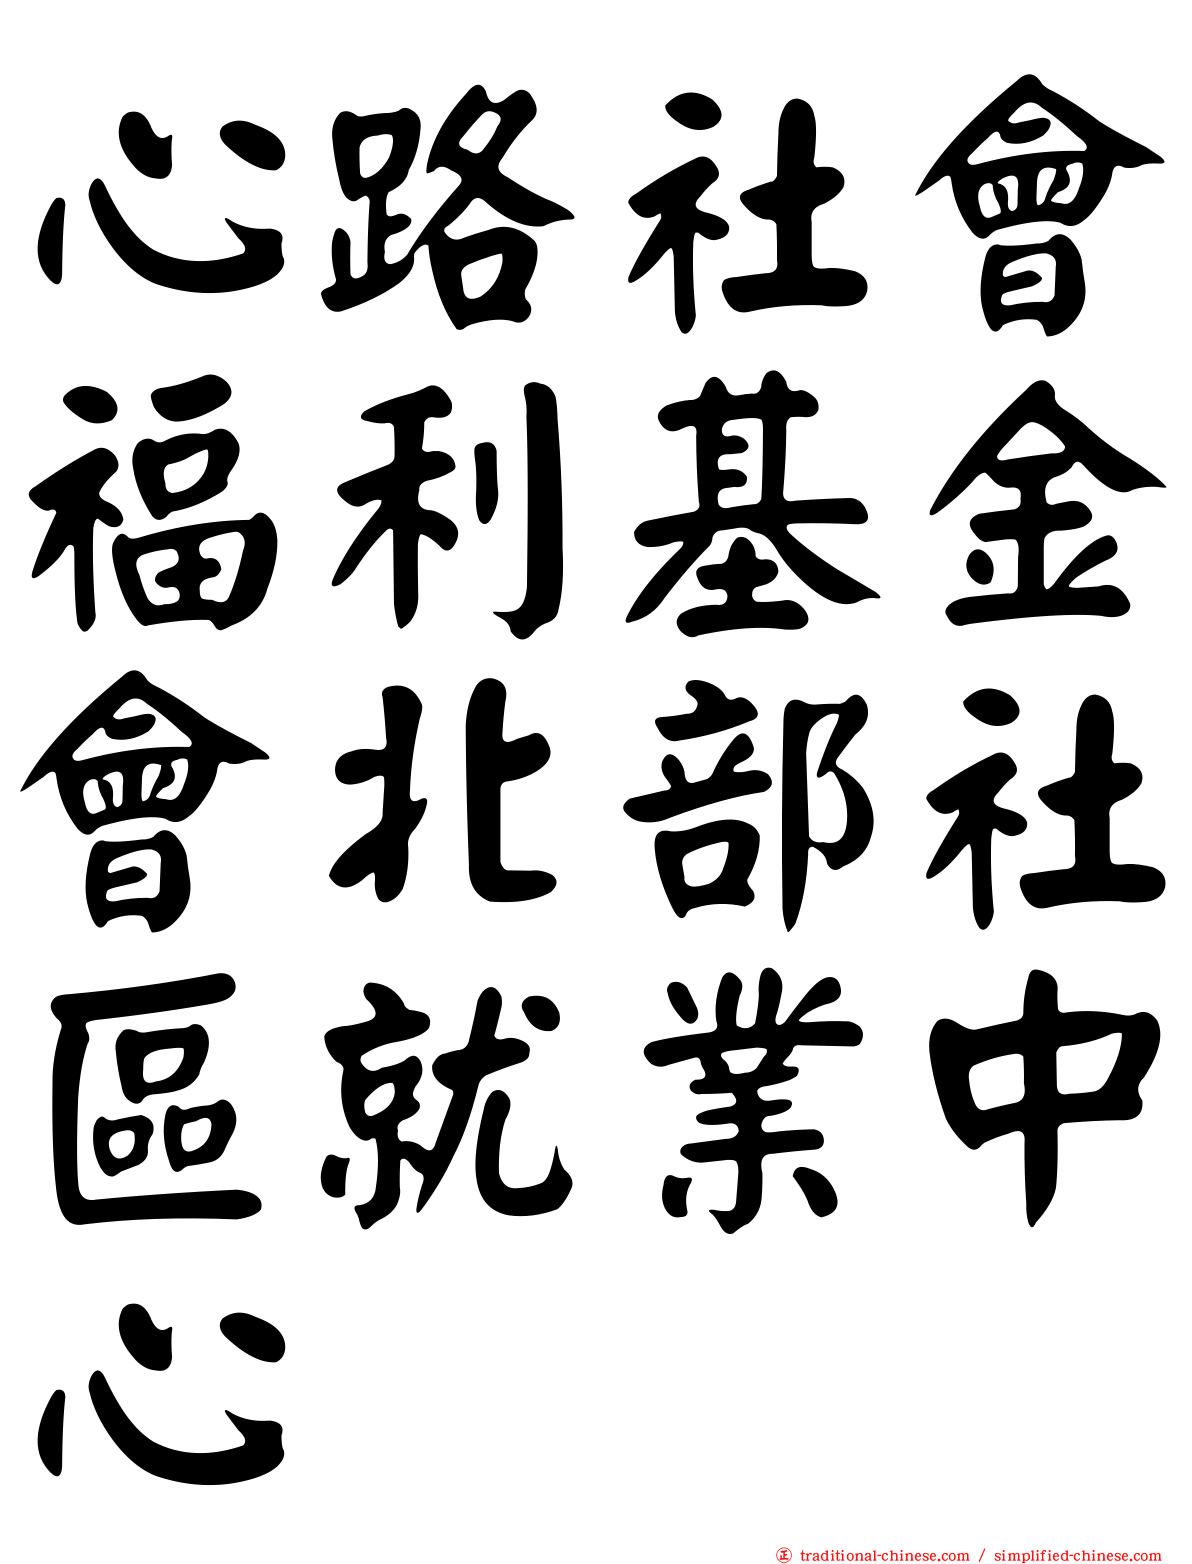 心路社會
福利基金
會北部社
區就業中
心
正 traditional-chinese.com / simplified-chinese.com